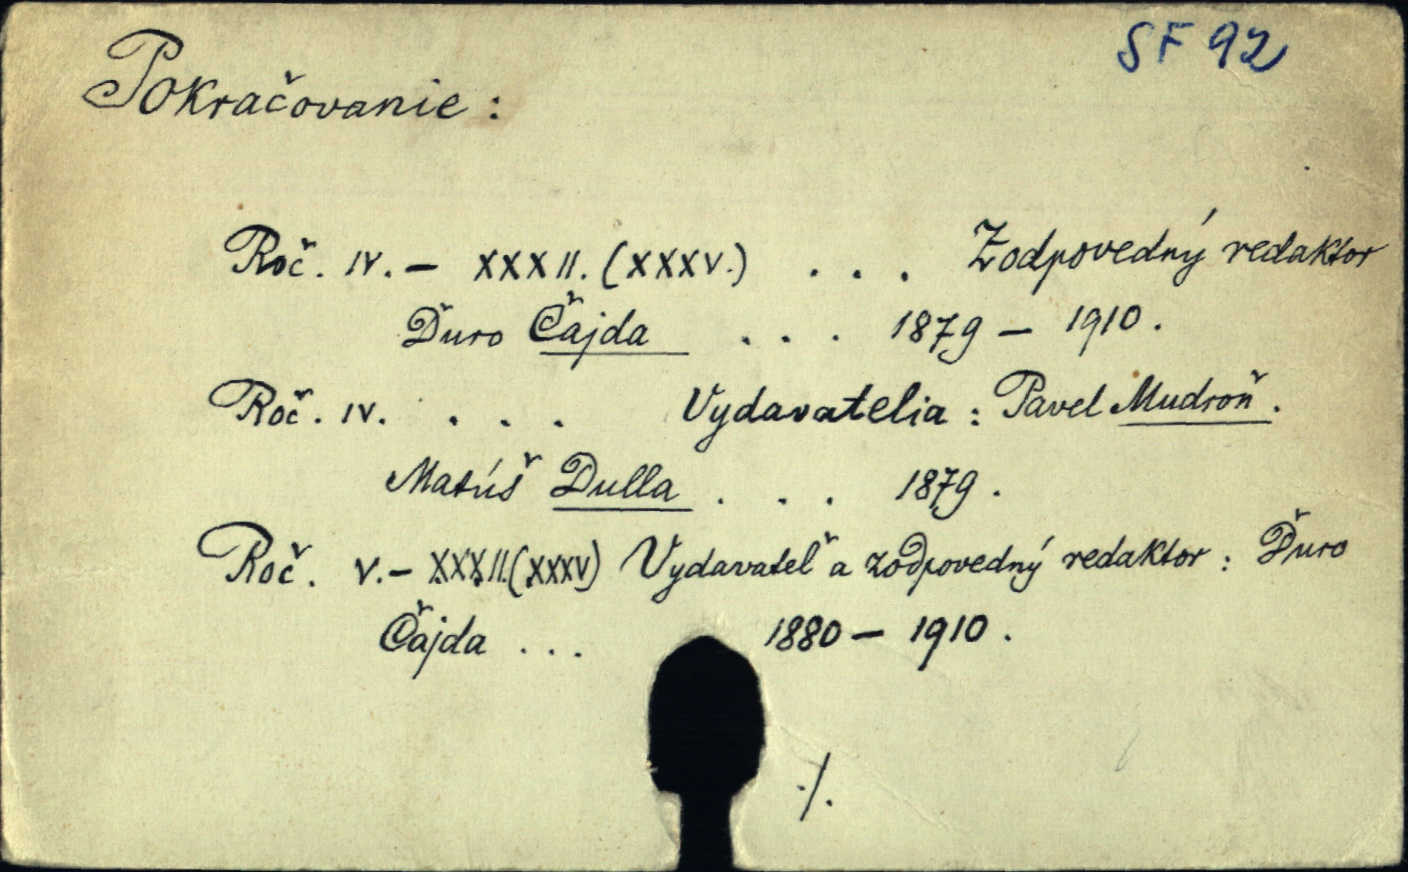 SF 92
Pokračovanie :
Roč. IV. – XXXII. (XXXV.) . . . Zodpovedný redaktor
Ďuro Čajda . . . 1879 – 1910 .
Roč. IV. . . . Vydavatelia : Pavel Mudroň .
Matúš Dulla . . . 1879 .
Roč. V. – XXXII. (XXXV) Vydavateľ a zodpovedný redaktor : Ďuro
Čajda . . . 1880 – 1910 .
./.